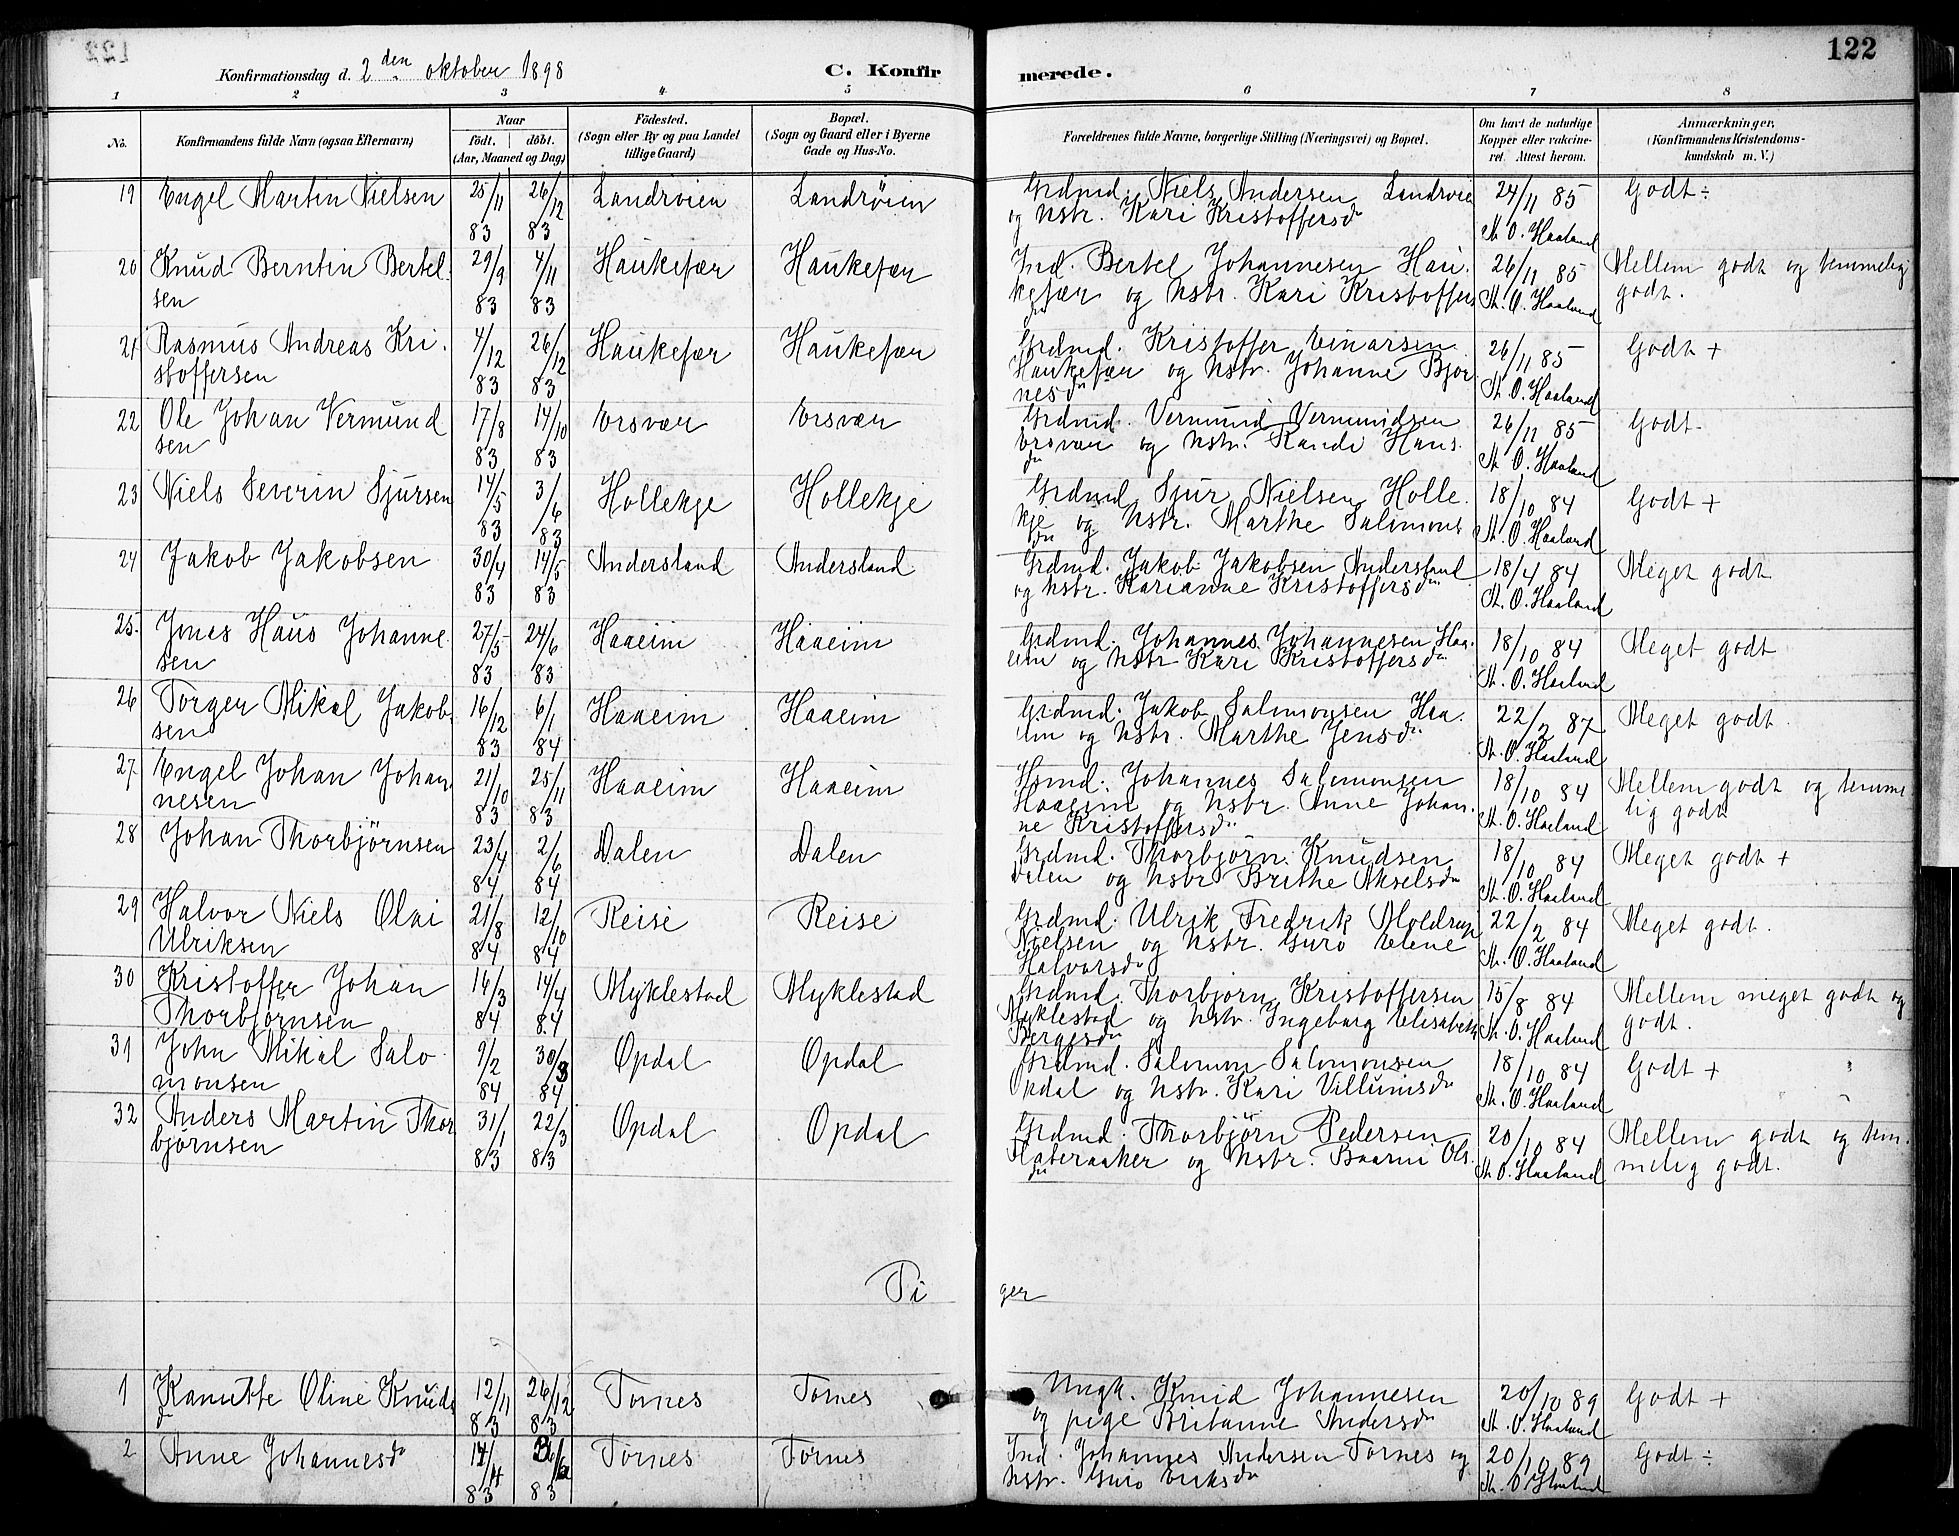 122
Konfirmationsdag d. 2den oktober 1898
C. Konfirmerede.
1 2 3 4 5 6 7 8
No.
Konfirmandens fulde Navn (ogsaa Efternavn)
Naar
födt. döbt.
(Aar, Maaned og Dag)
Födested.
(Sogn eller By og paa Landet
tillige Gaard)
Bopæl.
(Sogn og Gaard eller i Byerne
Gade og Hus-No.
Forældrenes fulde Navne, borgerlige Stilling (Næringsvei) og Bopæl.
Om havt de naturlige
Kopper eller vakcine-
ret. Attest herom.
Anmærkninger,
(Konfirmandens Kristendoms-
kundskab m. V.)
19 Engel Martin Nielsen 25/11 83 26/12 83 Landrøien Landrøien Grdmd. Niels Andersen Landrøien
og hstr. Kari Kristoffersdr 24/11 85 Th. O. Haaland Godt ÷
20 Knud Berntin Bertel-
sen 29/9 83 4/11 83 Haukefær Haukefær Ind. Bertel Johannesen Hau-
kefær og hstr. Kari Kristoffers
dr 26/11 85 Th. O. Haaland Mellem godt og temmelig
godt.
21 Rasmus Andreas Kri-
stoffersen 4/12 83 26/12 83 Haukefær Haukefær Grdmd. Kristoffer Einarsen
Haukefær og hstr. Johanne Bjør
nesdr 26/11 85 Th. O. Haaland Godt +
22 Ole Johan Vermund
sen 17/8 83 14/10 83 Ersvær Ersvær Grdmd. Vermund Vermundsen
Ersvær og hstr. Randi Hans
dr 26/11 85 Th. O. Haaland Godt
23 Niels Severin Sjursen 14/5 83 3/6 83 Hollekje Hollekje Grdmd. Sjur Nielsen Holle-
kje og hstr. Marthe Salomons
dr 18/10 84 Th. O. Haaland Godt +
24 Jakob Jakobsen 30/4 83 14/5 83 Andersland Andersland Grdmd. Jakob Jakobsen Andersland
og hstr. Karianne Kristoffersdr 18/4 84 Th. O. Haaland Meget godt
25 Jones Haus Johanne-
sen 27/5 83 24/6 83 Haaeim Haaeim Grdmd. Johannes Johannesen Haa-
eim og hstr Kari Kristoffersdr 18/10 84 Th. O. Haaland Meget godt
26 Torger Mikal Jakob
sen 16/12 83 6/1 84 Haaeim Haaeim Grdmd. Jakob Salomonsen Haa-
eim og hstr. Marthe Jensdr 22/2 87 Th. O. Haaland Meget godt.
27 Engel Johan Johan
nesen 21/10 83 25/11 83 Haaeim Haaeim Hsmd. Johannes Salomonsen
Haaeim og hstr. Anne Johan-
ne Kristoffersdr 18/10 84 Th. O. Haaland Mellem godt og temme
lig godt
28 Johan Thorbjörnsen 23/4 84 2/6 84 Dalen Dalen Grdmd. Thorbjörn Knudsen
Dalen og hstr Brithe Akselsdr 18/10 84 Th. O. Haaland Meget godt +
29 Halvor Niels Olai
Ulriksen 21/8 84 12/10 84 Reise Reise Grdmd. Ulrik Fredrik Moldrup
Nielsen og hstr. Guro Elene
Halvorsdr 22/2 84 Th. O. Haaland Meget godt.
30 Kristoffer Johan
Thorbjørnsen 16/3 84 14/4 84 Myklestad Myklestad Grdmd. Thorbjørn Kristoffersen
Myklestad og hstr. Ingeborg Elisabeth
Bergesdr 15/8 84 Th. O. Haaland Mellem meget godt og
godt.
31 John Mikal Salo-
monsen 9/2 84 30/3 84 Opdal Opdal Grdmd. Salomon Salomonsen
Opdal og hstr. Kari Villumsdr 18/10 84 Th. O. Haaland Godt +
32 Anders Martin Thor
bjørnsen 31/1 83 22/3 83 Opdal Opdal Grdmd. Thorbjørn Pedersen
Flateraaker og hstr. Baarni Ols
dr 20/10 84 Th. O. Haaland Mellem godt og tem-
melig godt.
Piger
1 Kanutte Oline Knuds
d 12/11 83 26/12 83 Tornes Tornes Ungk. Knud Johannesen
og pige Britanne Andersdr 20/10 89 Th. O. Haaland Godt +
2 Anne Johannesdr 14/4 83 83 Tornes Tornes Ind. Johannes Andersen Tornes og
hstr. Guro Eriksdr 20/10 89 Th. O. Haaland Godt ÷